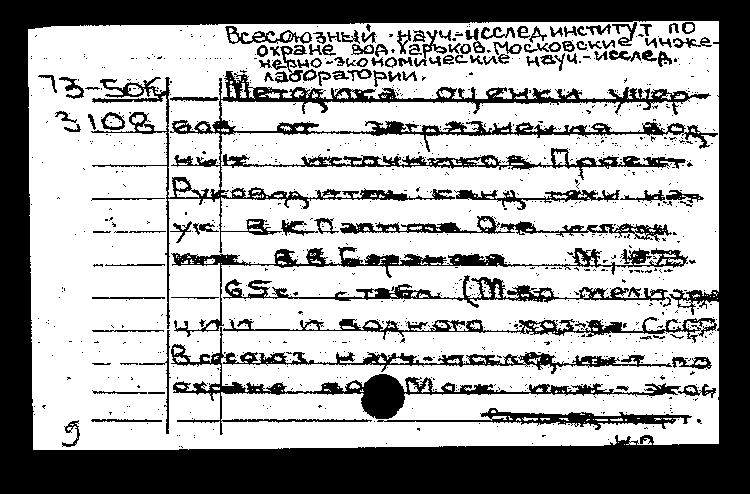 Всесоюзный науч.-исслед. институт по
охране вод. Харьков. Московские инже-
нерно-экономические науч.-исслед.
лаборатории.
73-50К Методика оценки ущер-
3108 бов от загрязнения вод
ных источников. Проект.
Руководитель: канд. техн. на-
ук В. К. Отв. исполн.
инж. В. В. Баранова М., 1973.
65с. с табл. (М-во мелиора
ции и водного хоз-ва СССР
Всесоюз. науч.-исслед. ин-т по
охране вод Моск. инж.-экон.
9